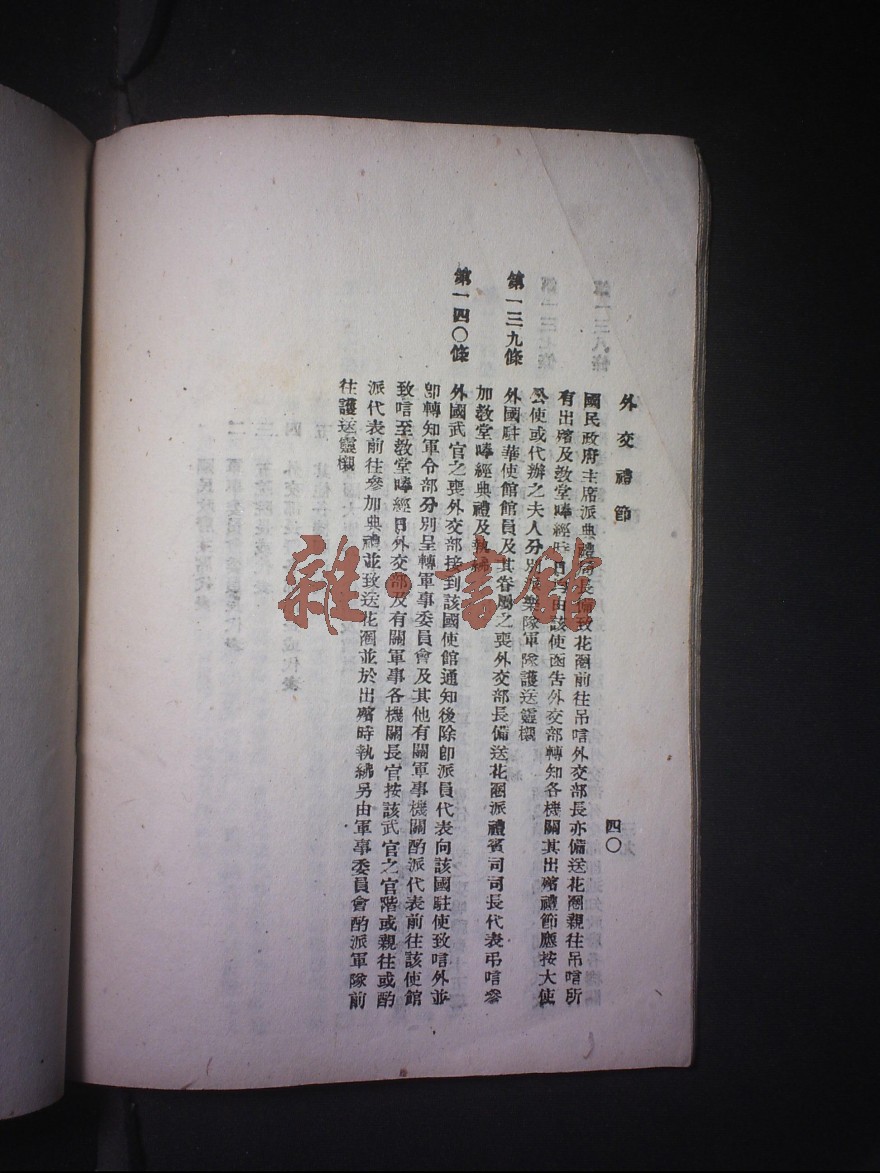 外交禮節
四〇
國民政府主席派典禮局長備致花圈前往吊唁外交部長亦備送花圈親往吊唁所
有出殯及教堂唪經時日均由該使函告外交部轉知各機關其出殯禮節應按大使
公使或代辦之夫人分別派樂隊軍隊護送靈櫬
第一三九條 外國駐華使館館員及其眷屬之喪外交部長備送花圈派禮賓司司長代表弔唁參
加教堂唪經典禮及執紼
第一四〇條 外國武官之喪外交部接到該國使館通知後除卽派員代表向該國駐使致唁外並
卽轉知軍令部分別呈轉軍事委員會及其他有關軍事機關酌派代表前往該使館
致唁至教堂唪經日外交部及有關軍事各機關長官按該武官之官階或親往或酌
派代表前往參加典禮並致送花圈並於出殯時執紼另由軍事委員會酌派軍隊前
往護送靈櫬
雜·書館